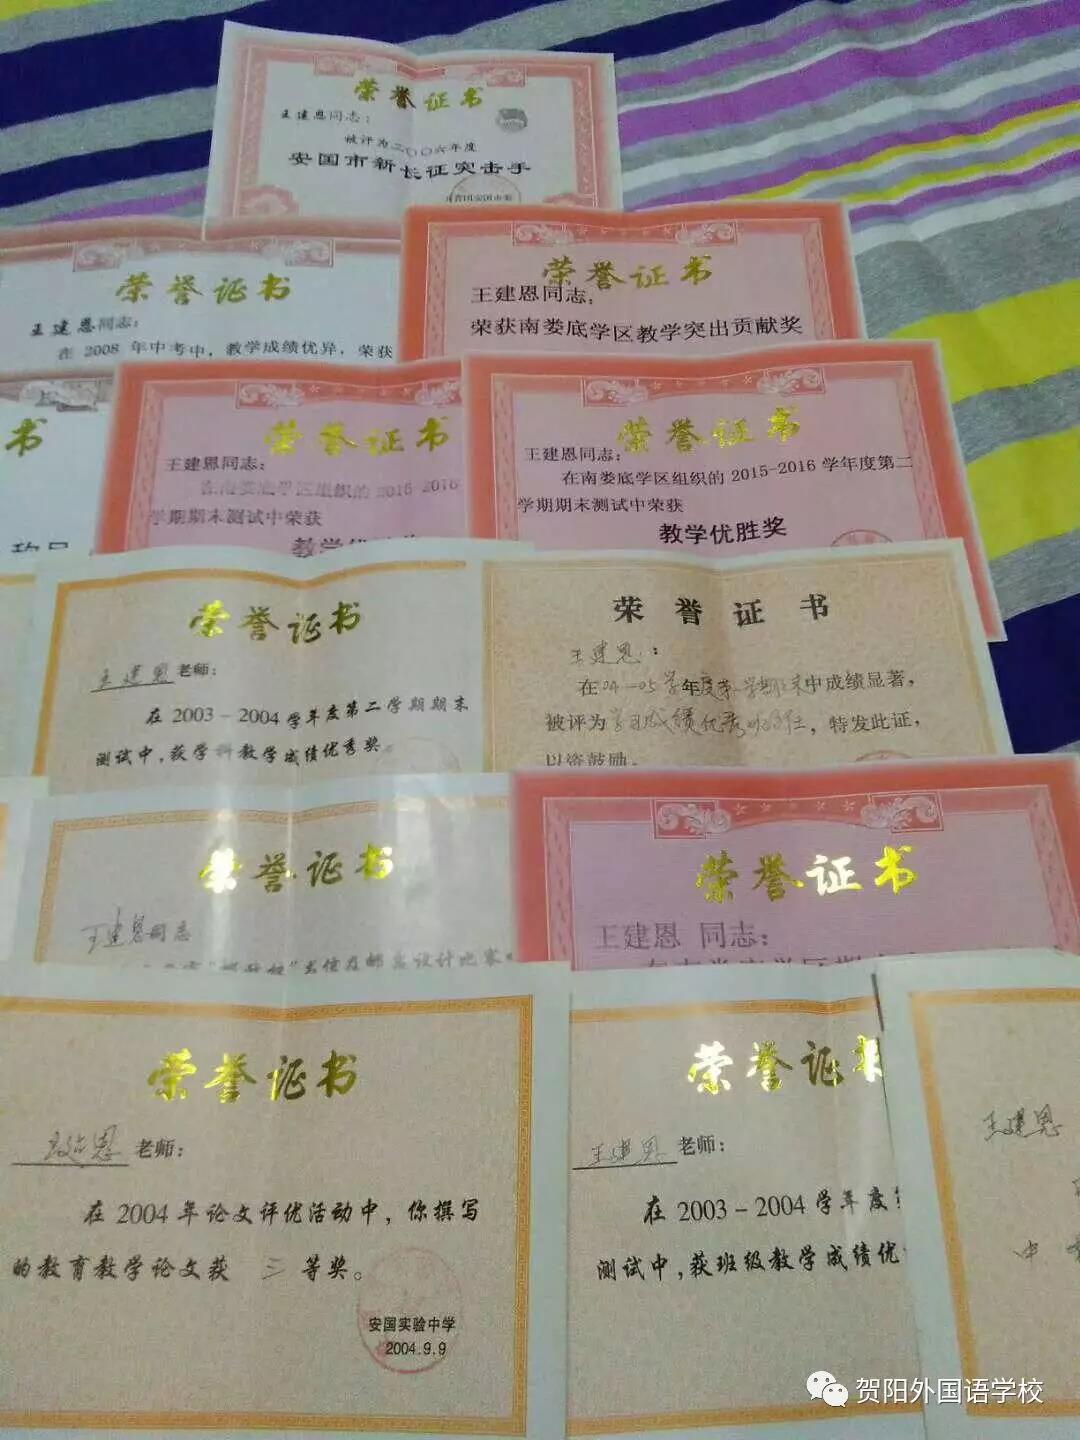 荣誉证书
王建恩同志：
被评为二〇〇六年度
安国市新长征突击手
共青团安国市委
荣誉证书
王建恩同志：
在 2008 年中考中，教学成绩优异，荣获
荣誉证书
王建恩同志：
荣获南娄底学区教学突出贡献奖
书
荣誉证书
王建恩同志：
在南娄底学区组织的 2015-2016
学期期末测试中荣获
荣誉证书
王建恩同志：
在南娄底学区组织的 2015-2016 学年度第二
学期期末测试中荣获
教学优胜奖
荣誉证书
王建恩老师：
在 2003－2004 学年度第二学期期末
测试中，获学科教学成绩优秀奖。
荣誉证书
王建恩：
在04—05学年度第一学期期末中成绩显著，
被评为学习成绩优秀班主任，特发此证，
以资鼓励。
荣誉证书
王建恩同志
荣誉证书
王建恩 同志：
荣誉证书
王建恩老师：
在 2004 年论文评优活动中，你撰写
的教育教学论文获 三 等奖。
安国实验中学
2004.9.9
荣誉证书
王建恩老师：
在 2003－2004 学年度
测试中，获班级教学成绩优
王建恩
中
贺阳外国语学校